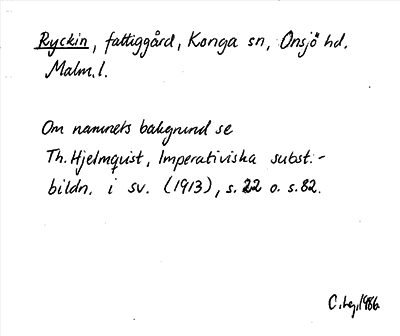 Ryckin, fattiggård, Konga sn, Onsjö hd.
Malm.l.
Om namnets bakgrund se
Th. Hjelmquist, Imperativiska subst.-
bildn. i sv. (1913), s. 22 o. s. 82.
1986